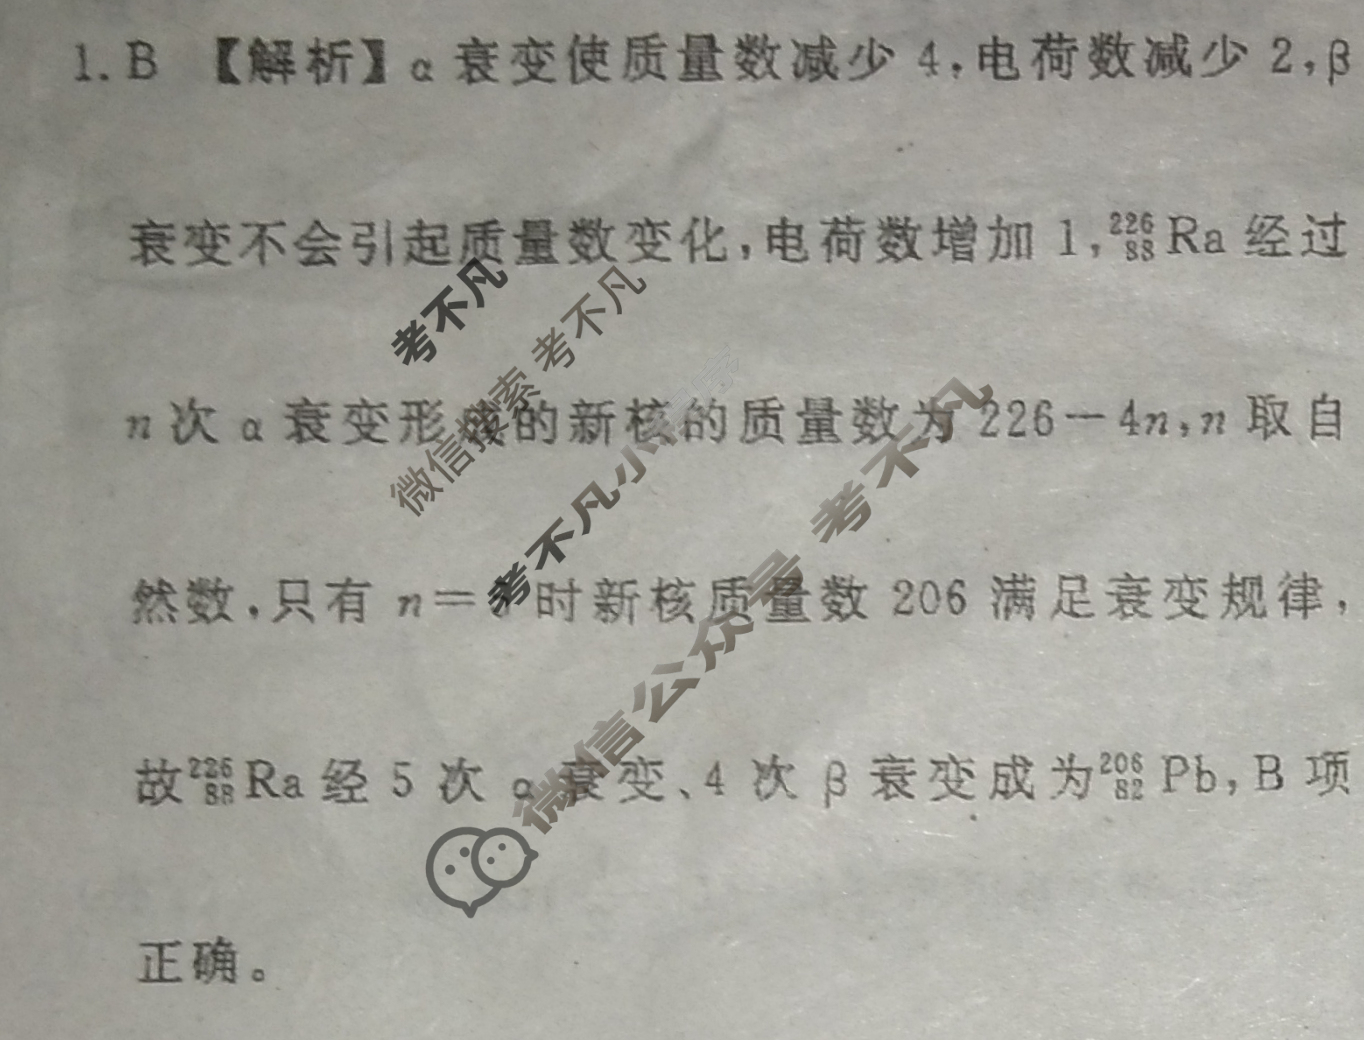 1. B 【解析】α 衰变使质量数减少 4,电荷数减少 2,β
衰变不会引起质量数变化,电荷数增加 1,²²⁶₈₈Ra 经过
n 次 α 衰变形成的新核的质量数为 226－4n,n 取自
然数,只有 n= 时新核质量数 206 满足衰变规律,
故²²⁶₈₈Ra 经 5 次 α 衰变、4 次 β 衰变成为²⁰⁶₈₂Pb,B 项
正确。
考不凡
微信搜索 考不凡
考不凡小
微信公众号 考不凡